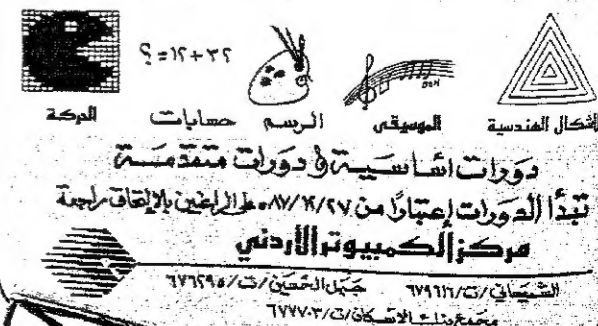 ؟=١٢+٣٢
الأشكال الهندسية الموسيقى الرسم حسابات الحركة
دورات أساسية و دورات متقدمة
تبدأ الدورات إعتبارًا من ٨٧/١٢/٢٧ على الراغبين بالإلتحاق مراجعة
مركز الكمبيوتر الأردني
الشميساني/ت/٦٧٩٦١٦ جبل الحسين/ت/٦٧٦٢٩٥
مجمع بنك الإسكان/ت/٦٧٧٧٠٣